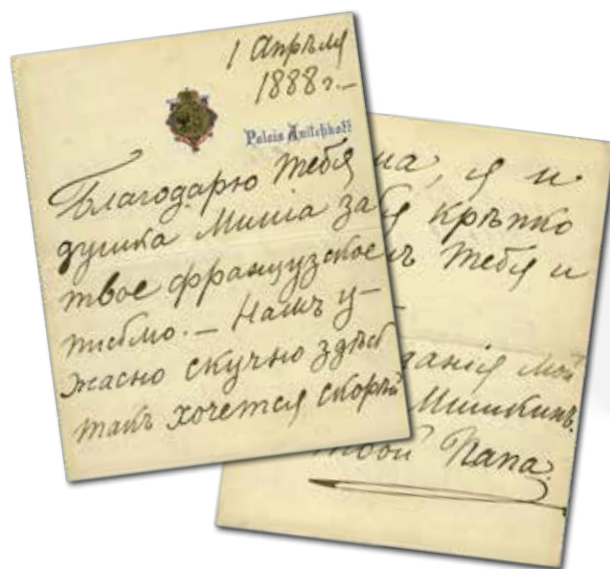 1 Апрѣля
1888 г.—
Palais Anitchkoff
Благодарю тебя
душка Миша за
твое французское
письмо. — Намъ у-
жасно скучно здѣсь
такъ хочется скорѣй
на, я и
крѣпко
тебя и
мой
Мишкинъ.
твой Папа.